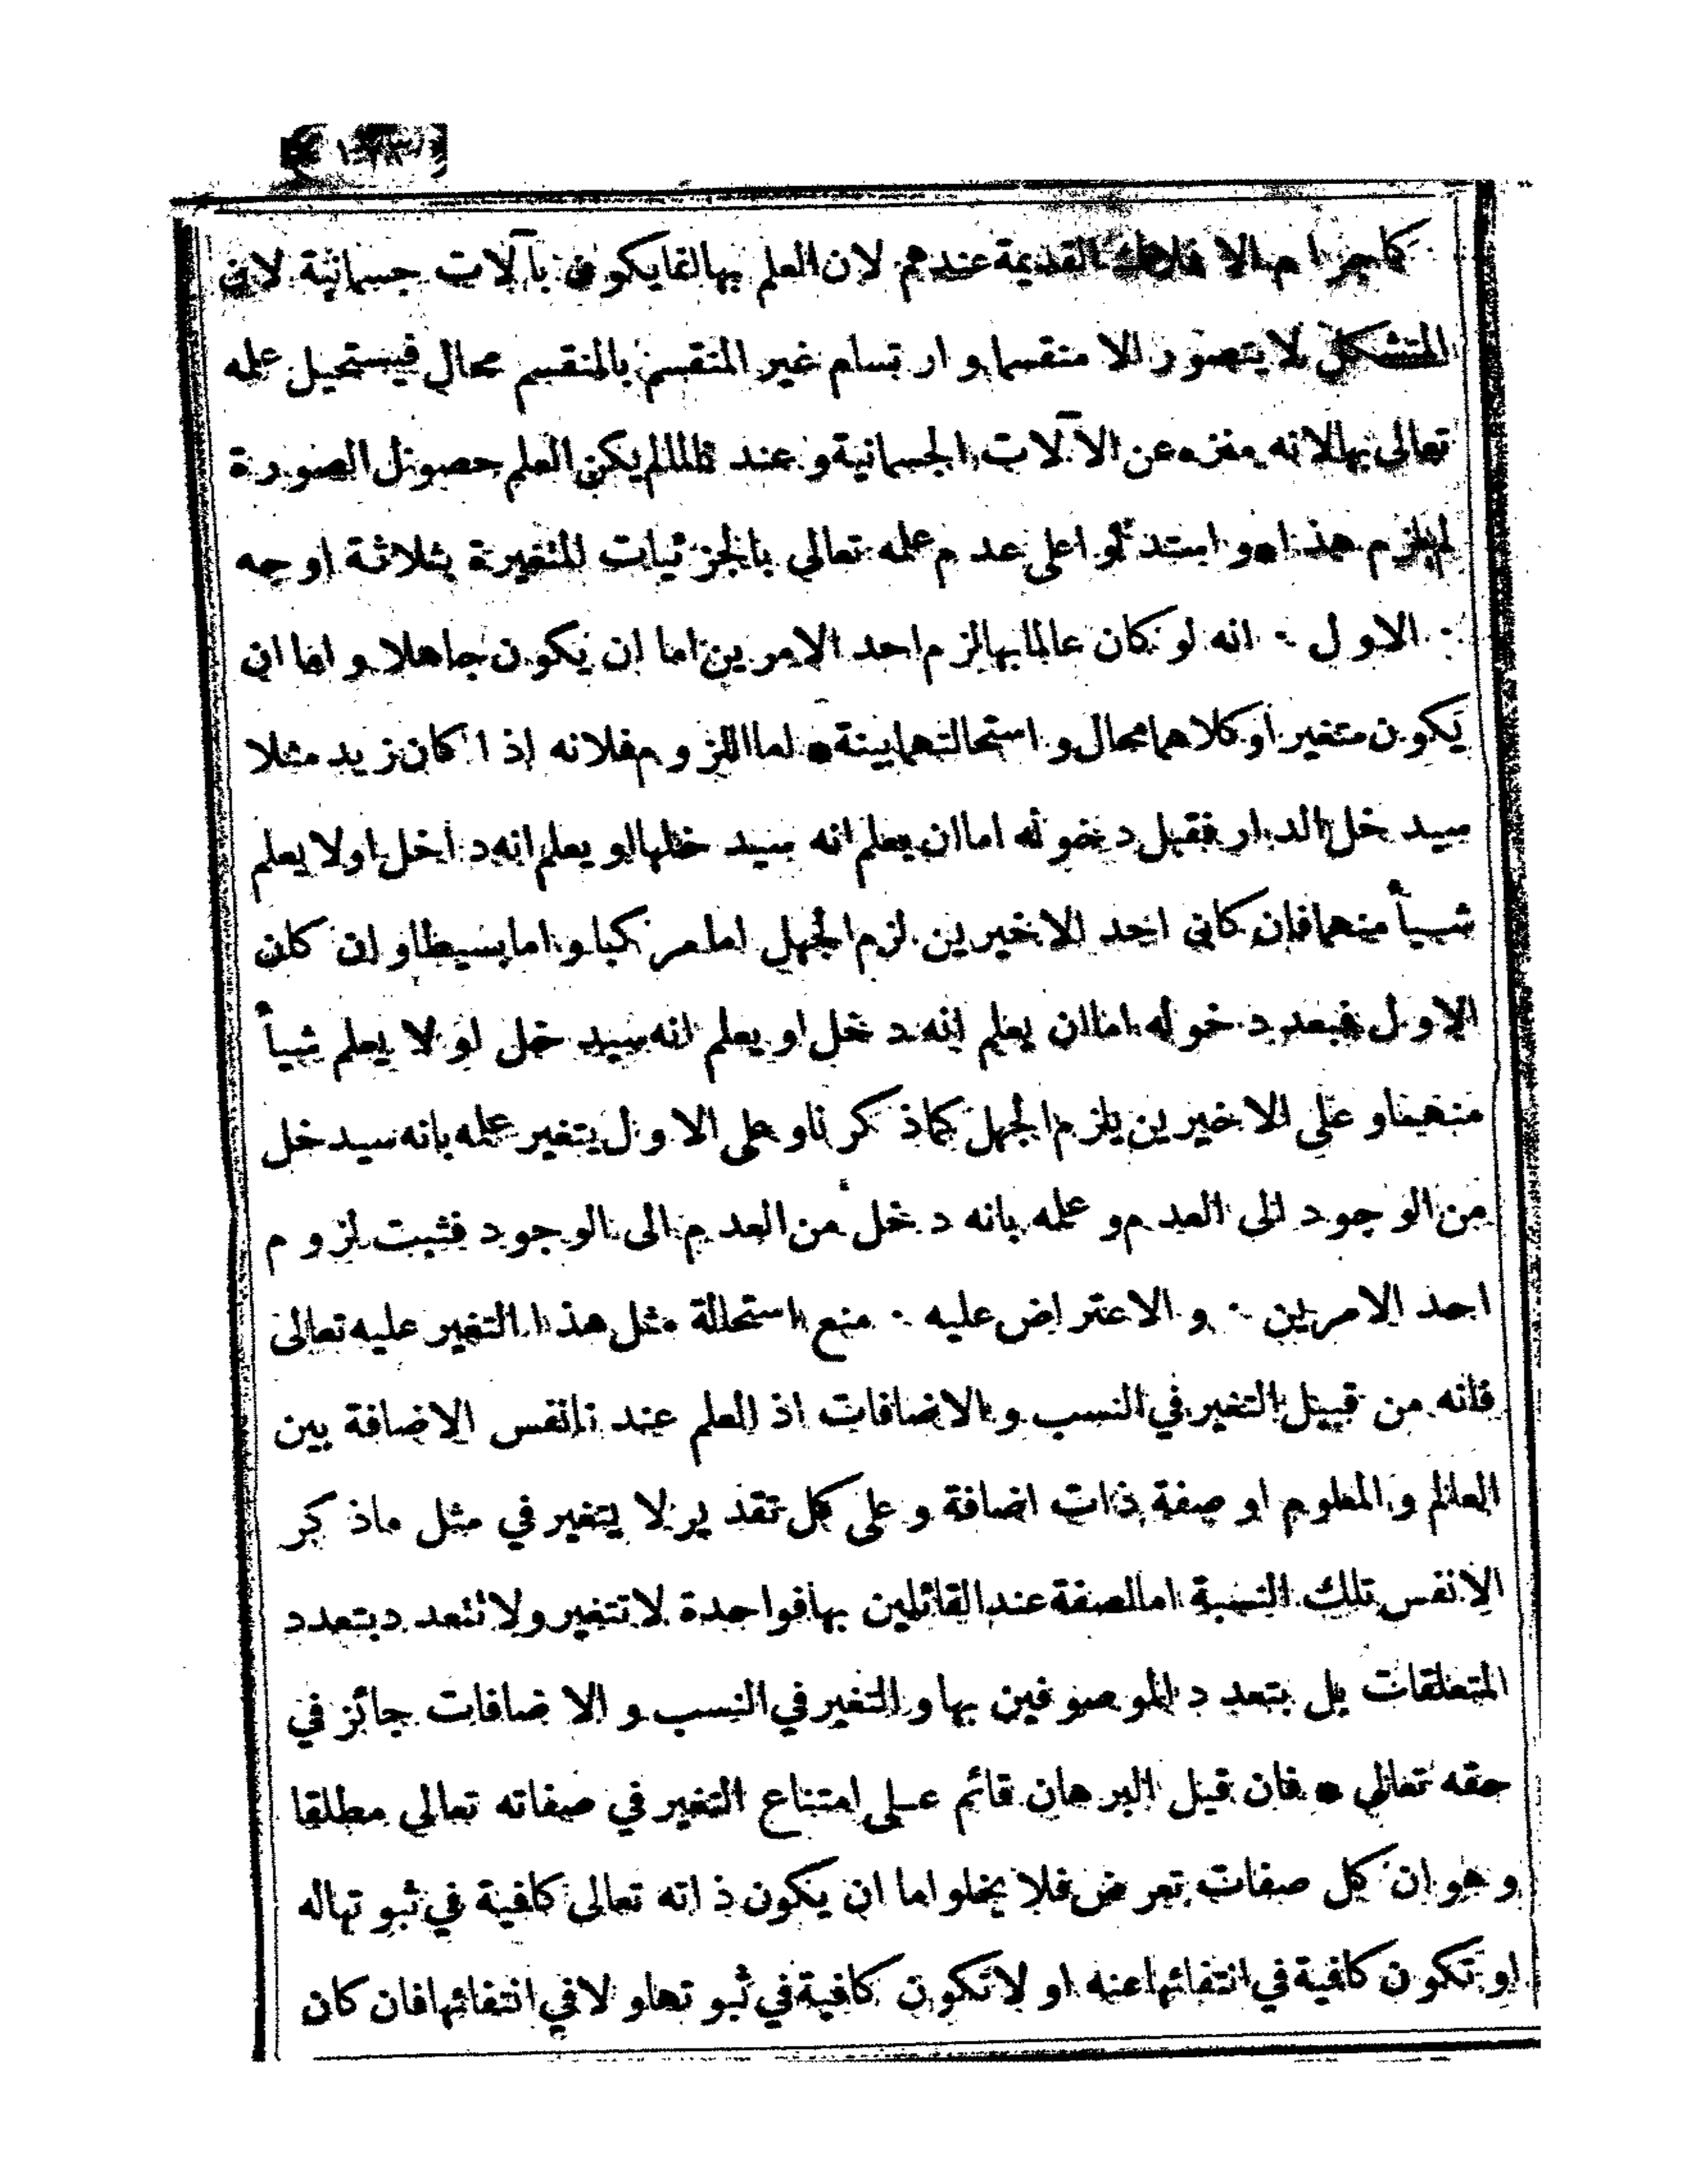 كاجرام الافلاك القديمة عندهم لان العلم بها انما يكون بآلات جسمانية لان
المتشكل لا يتصور الا منقسما وارتسام غير المنقسم بالمنقسم محال فيستحيل علمه
تعالى بها لانه منزه عن الآلات الجسمانية وعند نا لما لم يكن العلم حصول الصورة
لم يلزم هذا • واستدلوا على عدم علمه تعالى بالجزئيات المتغيرة بثلاثة اوجه
الاول انه لو كان عالما بها لزم احد الامرين اما ان يكون جاهلا و اما ان
يكون متغيرا وكلاهما محال و استحالتهما بينة • اما اللزوم فلانه اذا كان زيد مثلا
سيدخل الدار فقبل دخوله اما ان يعلم انه سيدخلها او يعلم انه داخل او لا يعلم
شيأ منهما فان كان احد الاخيرين لزم الجهل اما مركبا و اما بسيطا و ان كان
الاول فبعد دخوله اما ان يعلم انه دخل او يعلم انه سيدخل او لا يعلم شيأ
منهما و على الاخيرين يلزم الجهل كما ذكرنا و على الاول يتغير علمه بانه سيدخل
من الوجود الى العدم و علمه بانه دخل من العدم الى الوجود فثبت لزوم
احد الامرين والاعتراض عليه منع استحالة مثل هذا التغير عليه تعالى
فانه من قبيل التغير في النسب و الاضافات اذ العلم عند نا نفس الاضافة بين
العالم و المعلوم او صفة ذات اضافة و على كل تقدير لا يتغير في مثل ما ذكر
الا نفس تلك النسبة اما الصفة عند القائلين بها فواحدة لا تتغير ولا تتعدد بتعدد
المتعلقات بل بتعدد الموصوفين بها و التغير في النسب و الاضافات جائز في
حقه تعالى • فان قيل البرهان قائم على امتناع التغير في صفاته تعالى مطلقا
و هو ان كل صفات تعرض فلا يخلو اما ان يكون ذاته تعالى كافية في ثبوتها له
او تكون كافية في انتفائها عنه او لا تكون كافية في ثبوتها و لا في انتفائها فان كان